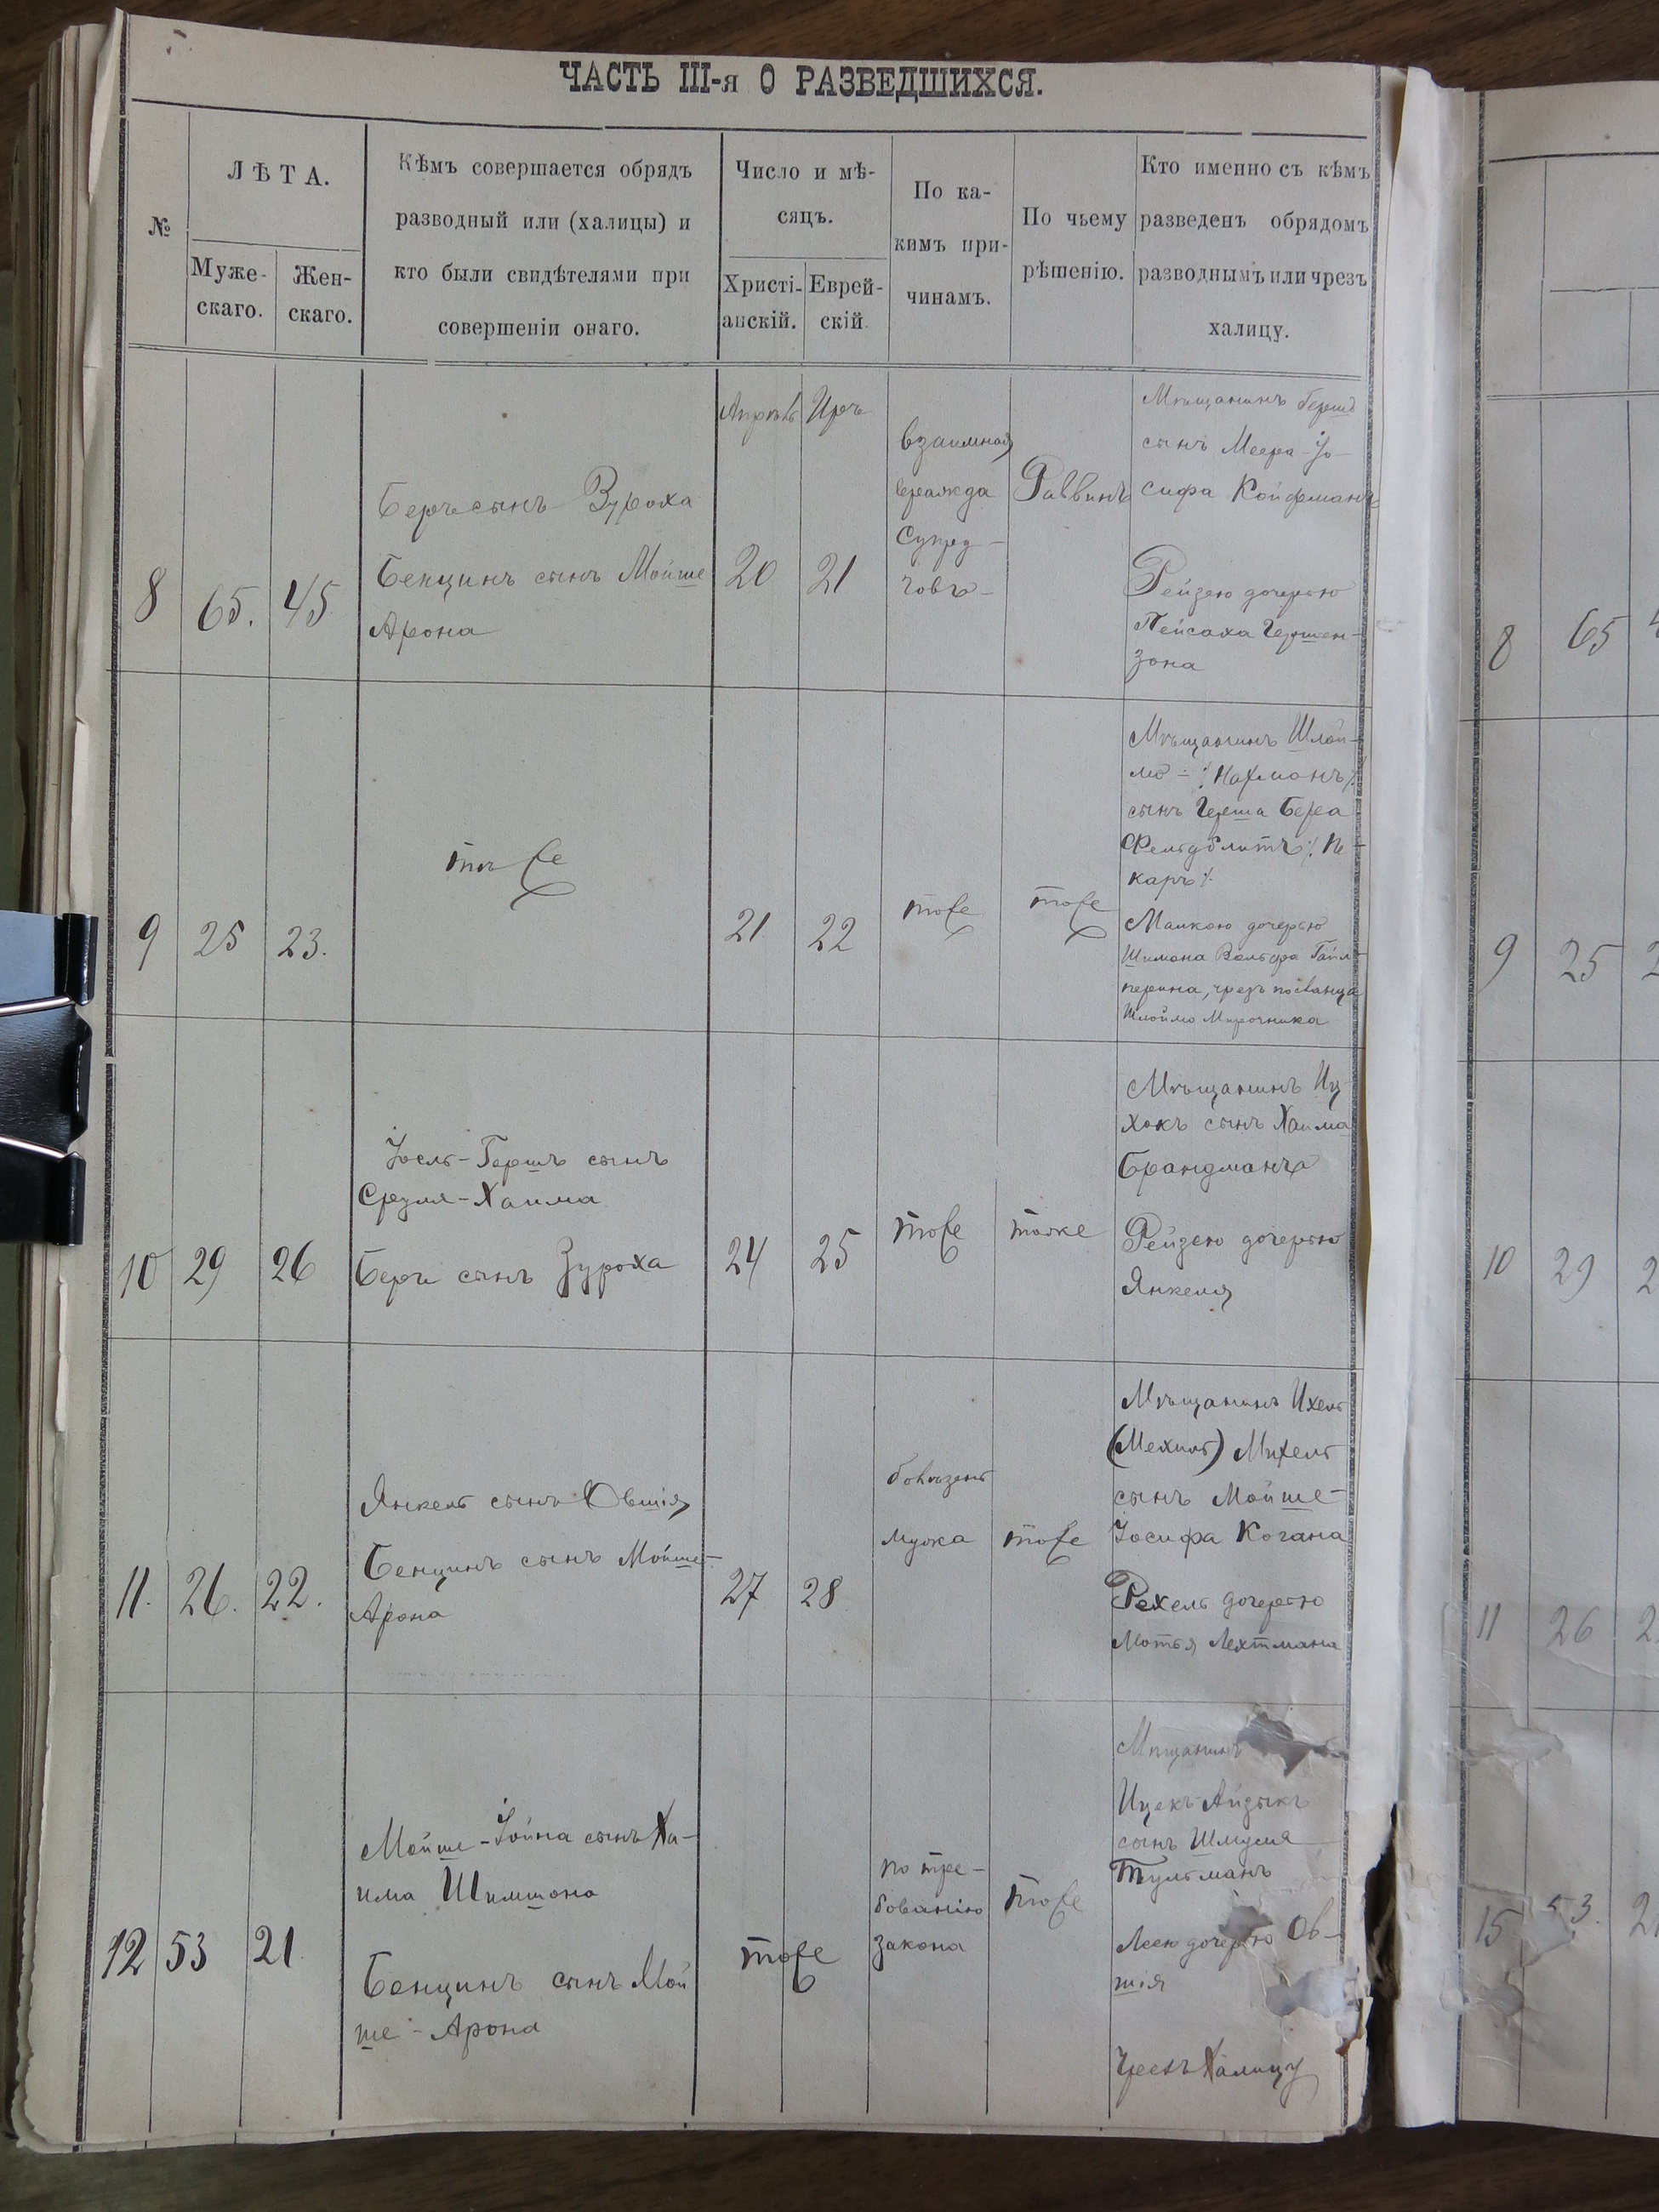 ЧАСТЬ III-я О РАЗВЕДШИХСЯ.
№
ЛѢТА.
Муже-
скаго.
Жен-
скаго.
Кѣмъ совершается обрядъ
разводный или (халицы) и
кто были свидѣтелями при
совершеніи онаго.
Число и мѣ-
сяцъ.
Христі-
анскій.
Еврей-
скій.
По ка-
кимъ при-
чинамъ.
По чьему
рѣшенію.
Кто именно съ кѣмъ
разведенъ обрядомъ
разводнымъ или чрезъ
халицу.
8
65.
45
Беръ сынъ Зуроха
Бенцинъ сынъ Мойше
Арона
Апрѣль
20
Иръ
21
взаимная
вражда
супру-
говъ
Раввинъ
Мѣщанинъ Берко
сынъ Меера-Іо-
сифа Койфманъ
Рейзею дочерью
Пейсаха Гершен-
зона
8
65
9
25
23.
тоже
21
22
тоже
тоже
Мѣщанинъ Шлой-
мо-/:Нахманъ:/
сынъ Герша Бера
Фельдблитъ /:Пе-
карь:/
Малкою дочерью
Шимона Вольфа Гайл-
перина, чрезъ посланца
Шлоймо Мирочника
9
25
2
10
29
26
Іосль-Гершъ сынъ
Сруля-Хаима
Бери сынъ Зуроха
24
25
тоже
тоже
Мѣщанинъ Иц-
хокъ сынъ Хаима
Брандманъ
Рейзею дочерью
Янкеля
10
29
2
11.
26.
22.
Янкель сынъ Овшія
Бенцинъ сынъ Мойше-
Арона
27
28
болѣзень
мужа
тоже
Мѣщанинъ Ихель
(Мехиль) Михель
сынъ Мойше-
Іосифа Когана
Рехель дочерью
Мотья Лехтмана
11
26
2
12
53
21.
Мойше-Іойна сынъ Ха-
има Шимшона
Бенцинъ сынъ Мой
ше-Арона
тоже
по тре-
бованію
закона
тоже
Мѣщанинъ
Ицекъ-Айзыкъ
сынъ Шмуля
Тульманъ
Леею дочерью Ов-
шія
Чрезъ Халицу
15
53.
21